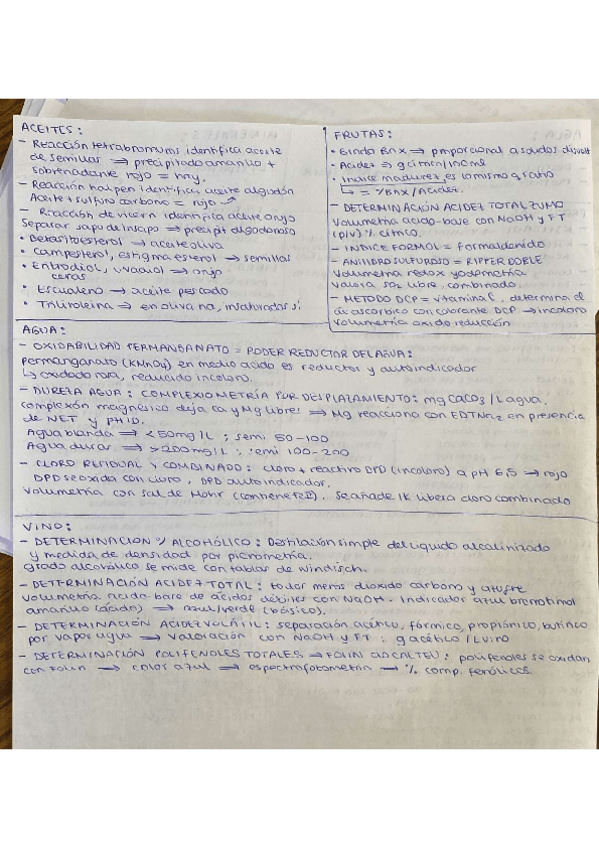 ACEITES:
- Reacción tetrabromuros identifica aceite
de semillas ⟹ precipitado amarillo +
sobrenadante rojo = hay.
- Reacción halpen identifica aceite algodón
Aceite + sulfuro carbono = rojo
- Reacción de vizern identifica aceite orujo
Separar sapo de insapo ⟹ precipit algodonoso
• Betasitoesterol → aceite oliva
• Campesterol, estigmaesterol → semillas
• Eritrodiol, uvaol → orujo
ceras
• Escualeno → aceite pescado
• Trilinoleina → en oliva na, insaturadas sí
FRUTAS:
• Grado Brix ⟹ proporcional a solidos disuelt
• Acidez → g citrico/100ml
• Indice madurez, es lo mismo q ratio
↳ = º/Brix/Acidez.
- DETERMINACIÓN ACIDEZ TOTAL ZUMO
Volumetría acido-base con NaOH y FT
(p/v) % cítrico.
- INDICE FORMOL = formaldehido
- ANHIDRO SULFUROSO = RIPPER DOBLE
Volumetría redox yodometría
Valora SO2 libre, combinado.
- METODO DCP = vitamina C, determina el
ác ascorbico con colorante DCP → incoloro
Volumetría oxido reducción
AGUA:
- OXIDABILIDAD PERMANGANATO = PODER REDUCTOR DEL AGUA:
permanganato (KMnO4) en medio acido es reductor y autoindicador
↳ oxidado rosa, reducido incoloro.
- DUREZA AGUA: COMPLEXIOMETRÍA POR DESPLAZAMIENTO: mg CaCO3 / L agua.
complexón magnésico deja Ca y Mg libres ⟹ Mg reacciona con EDTNa2 en presencia
de NET y pH 10.
Agua blanda ⟹ < 50 mg/L ; semi 50-100
Agua duras ⟹ > 200 mg/L ; semi 100-200
- CLORO RESIDUAL Y COMBINADO: cloro + reactivo DPD (incoloro) a pH 6,5 → rojo
DPD se oxida con cloro, DPD autoindicador.
Volumetría con sal de Mohr (contiene Fe II). Se añade IK libera cloro combinado
VINO:
- DETERMINACION º/ ALCOHÓLICO: Destilación simple del liquido alcalinizado
y medida de densidad por picnometría.
grado alcohólico se mide con tablas de windisch.
- DETERMINACIÓN ACIDEZ TOTAL: todos menos dioxido carbono y azufre
volumetría acido-base de ácidos débiles con NaOH. Indicador azul bromotimol
amarillo (ácido) ⟹ azul/verde (básico).
- DETERMINACIÓN ACIDEZ VOLÁTIL: separación acético, fórmico, propiónico, butírico
por vapor agua → Valoración con NaOH y FT: g acético / L vino
- DETERMINACIÓN POLIFENOLES TOTALES → FOLIN CIOCALTEU: polifenoles se oxidan
con Folin → color azul → espectrofotometría → % comp. fenólicos.